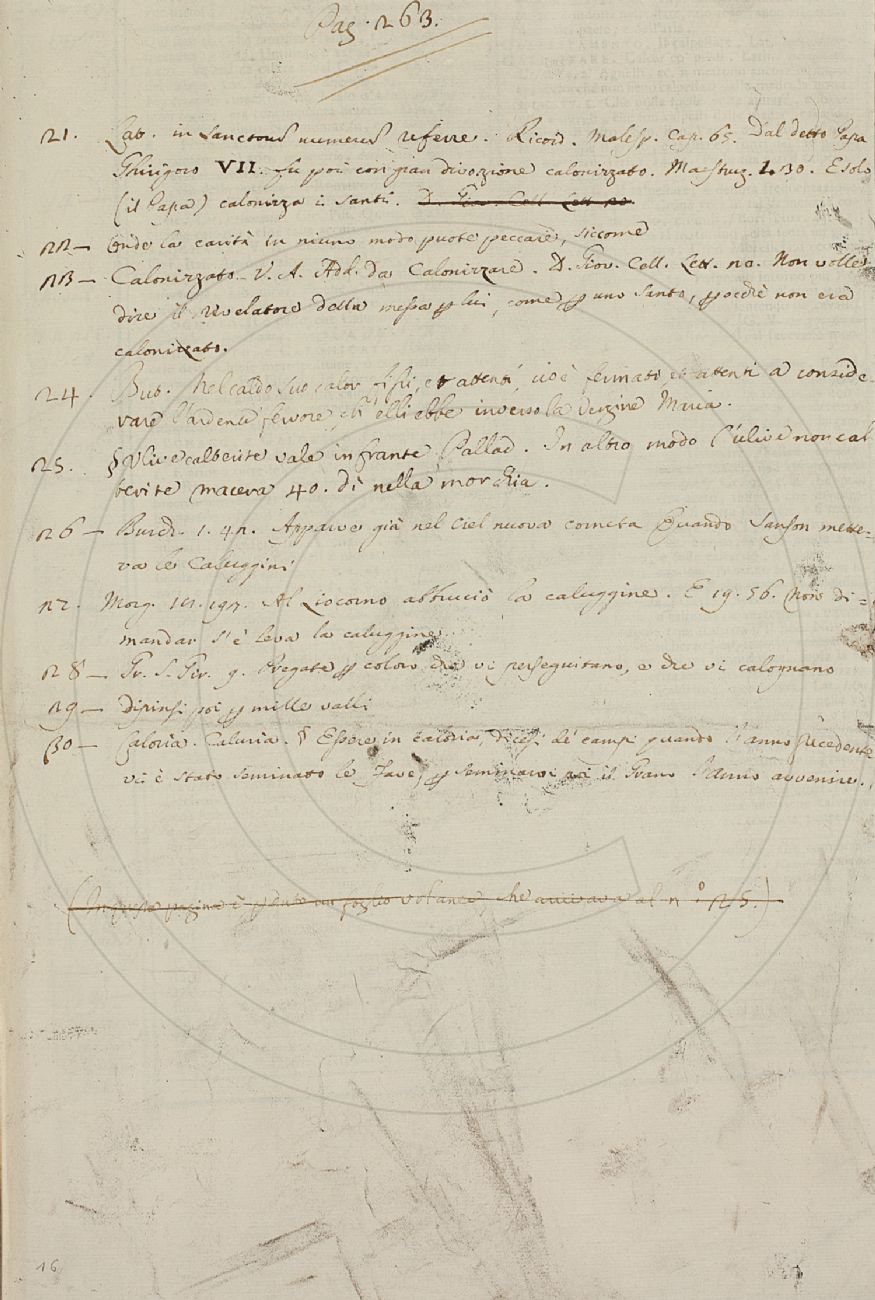 Pag. 263.
21. Lat. in sanctorū numerū referre. Ricord. Malesp. Cap. 65. Dal detto Papa
Ghirigoro VII. fu poi con gran divozione calonizzato. Maestruz. 1. 30. E solo
(il Papa) calonizza i santi. D. Gio. Cell. Lett. 20.
22 — Onde la carità in niuno modo puote peccare, siccome
23 — Calonizzato. V. A. Add. da Calonizzare. D. Giov. Cell. Lett. 20. Non volle
dire il rivelatore della messa p lui, come p uno santo, pocchè non era
calonizzato.
24. But. Nel caldo suo calor fissi, et attenti, cioè fermati, et attenti a conside-
rare l'ardente fervore, ch' elli ebbe inverso la Vergine Maria.
25. § Ulive calterite vale infrante. Pallad. In altro modo l'ulive non cal
terite macera 40. dì nella morchia.
26 — Burch. 1. 42. Apparve già nel Ciel nuova cometa Quando Sanson mette=
va le Caluggini
27. Morg. 14. 197. Al Liocorno abbruciò la caluggine. E 19. 56. Non di=
mandar s'e' leva la caluggine
28 — Gr. S. Gir. 9. Pregate p coloro che vi perseguitano, e che vi calognano
29 — Dipinsi poi p mille valli
30 — Caloria. Caluria. § Essere in caloria, dicesi de' campi quando l'anno precedente
vi è stato seminato le fave, p seminarvi poi il Grano l'anno avvenire.
(In questa pagina è perduto un foglio volante che arrivava al n.° 25.)
16